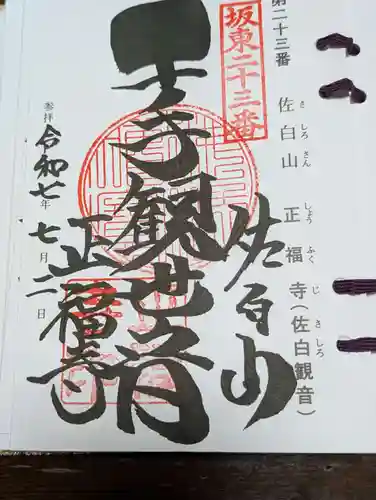 第二十三番 佐白山 正福寺(佐白観音)
さしろさん しょうふくじ さしろ
坂東二十三番
佐白山
千手観世音
正福寺
参拝 令和七年七月二日